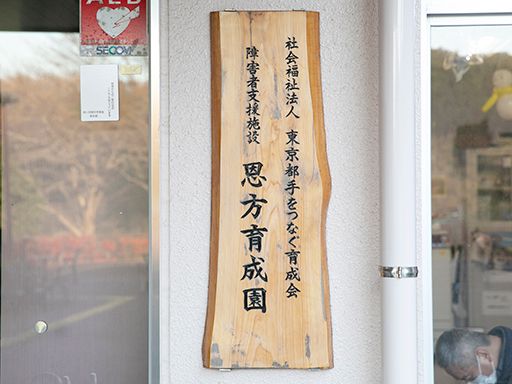 社会福祉法人 東京都手をつなぐ育成会
障害者支援施設 恩方育成園
AED
SECOM